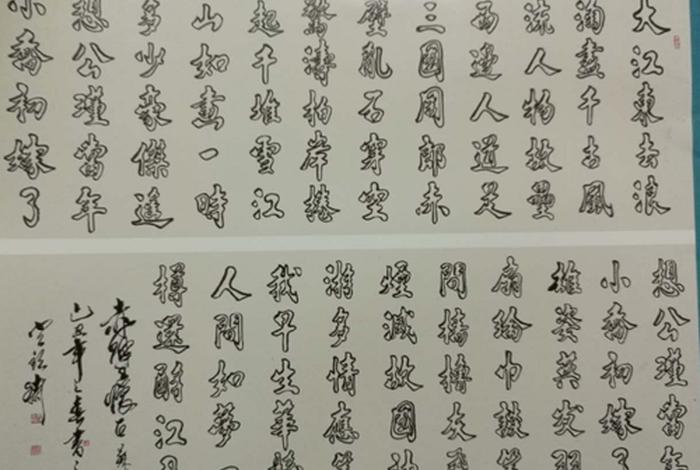 大江東去浪
淘盡千古風
流人物故壘
西邊人道是
三國周郎赤
壁亂石穿空
驚濤拍岸捲
起千堆雪江
山如畫一時
多少豪傑遙
想公瑾當年
小喬初嫁了
想公瑾當年
小喬初嫁了
雄姿英發羽
扇綸巾談笑
間檣櫓灰飛
煙滅故國神
游多情應笑
我早生華髮
人間如夢
樽還酹江月
赤壁懷古蘇
己丑年之春書